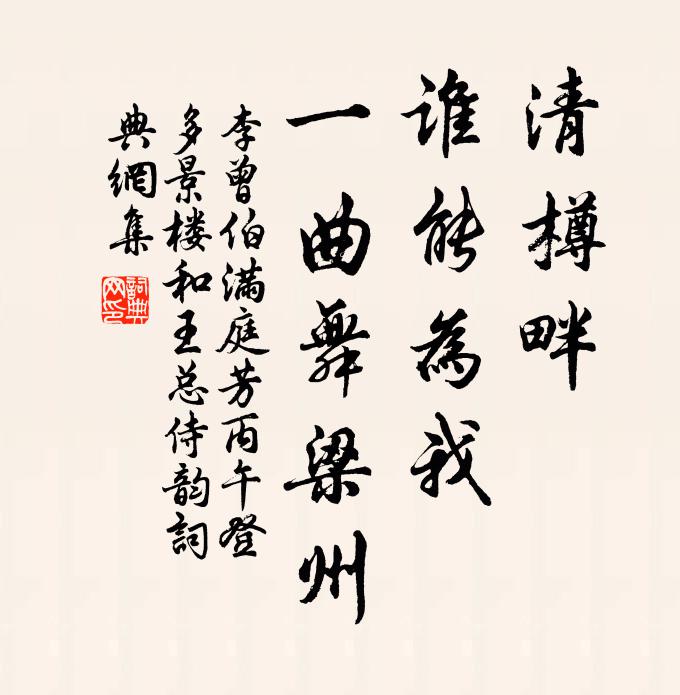 清樽畔
谁能為我
一曲舞梁州
李曾伯满庭芳丙午登
多景楼和王总侍韵詞
典網集
詞典網印